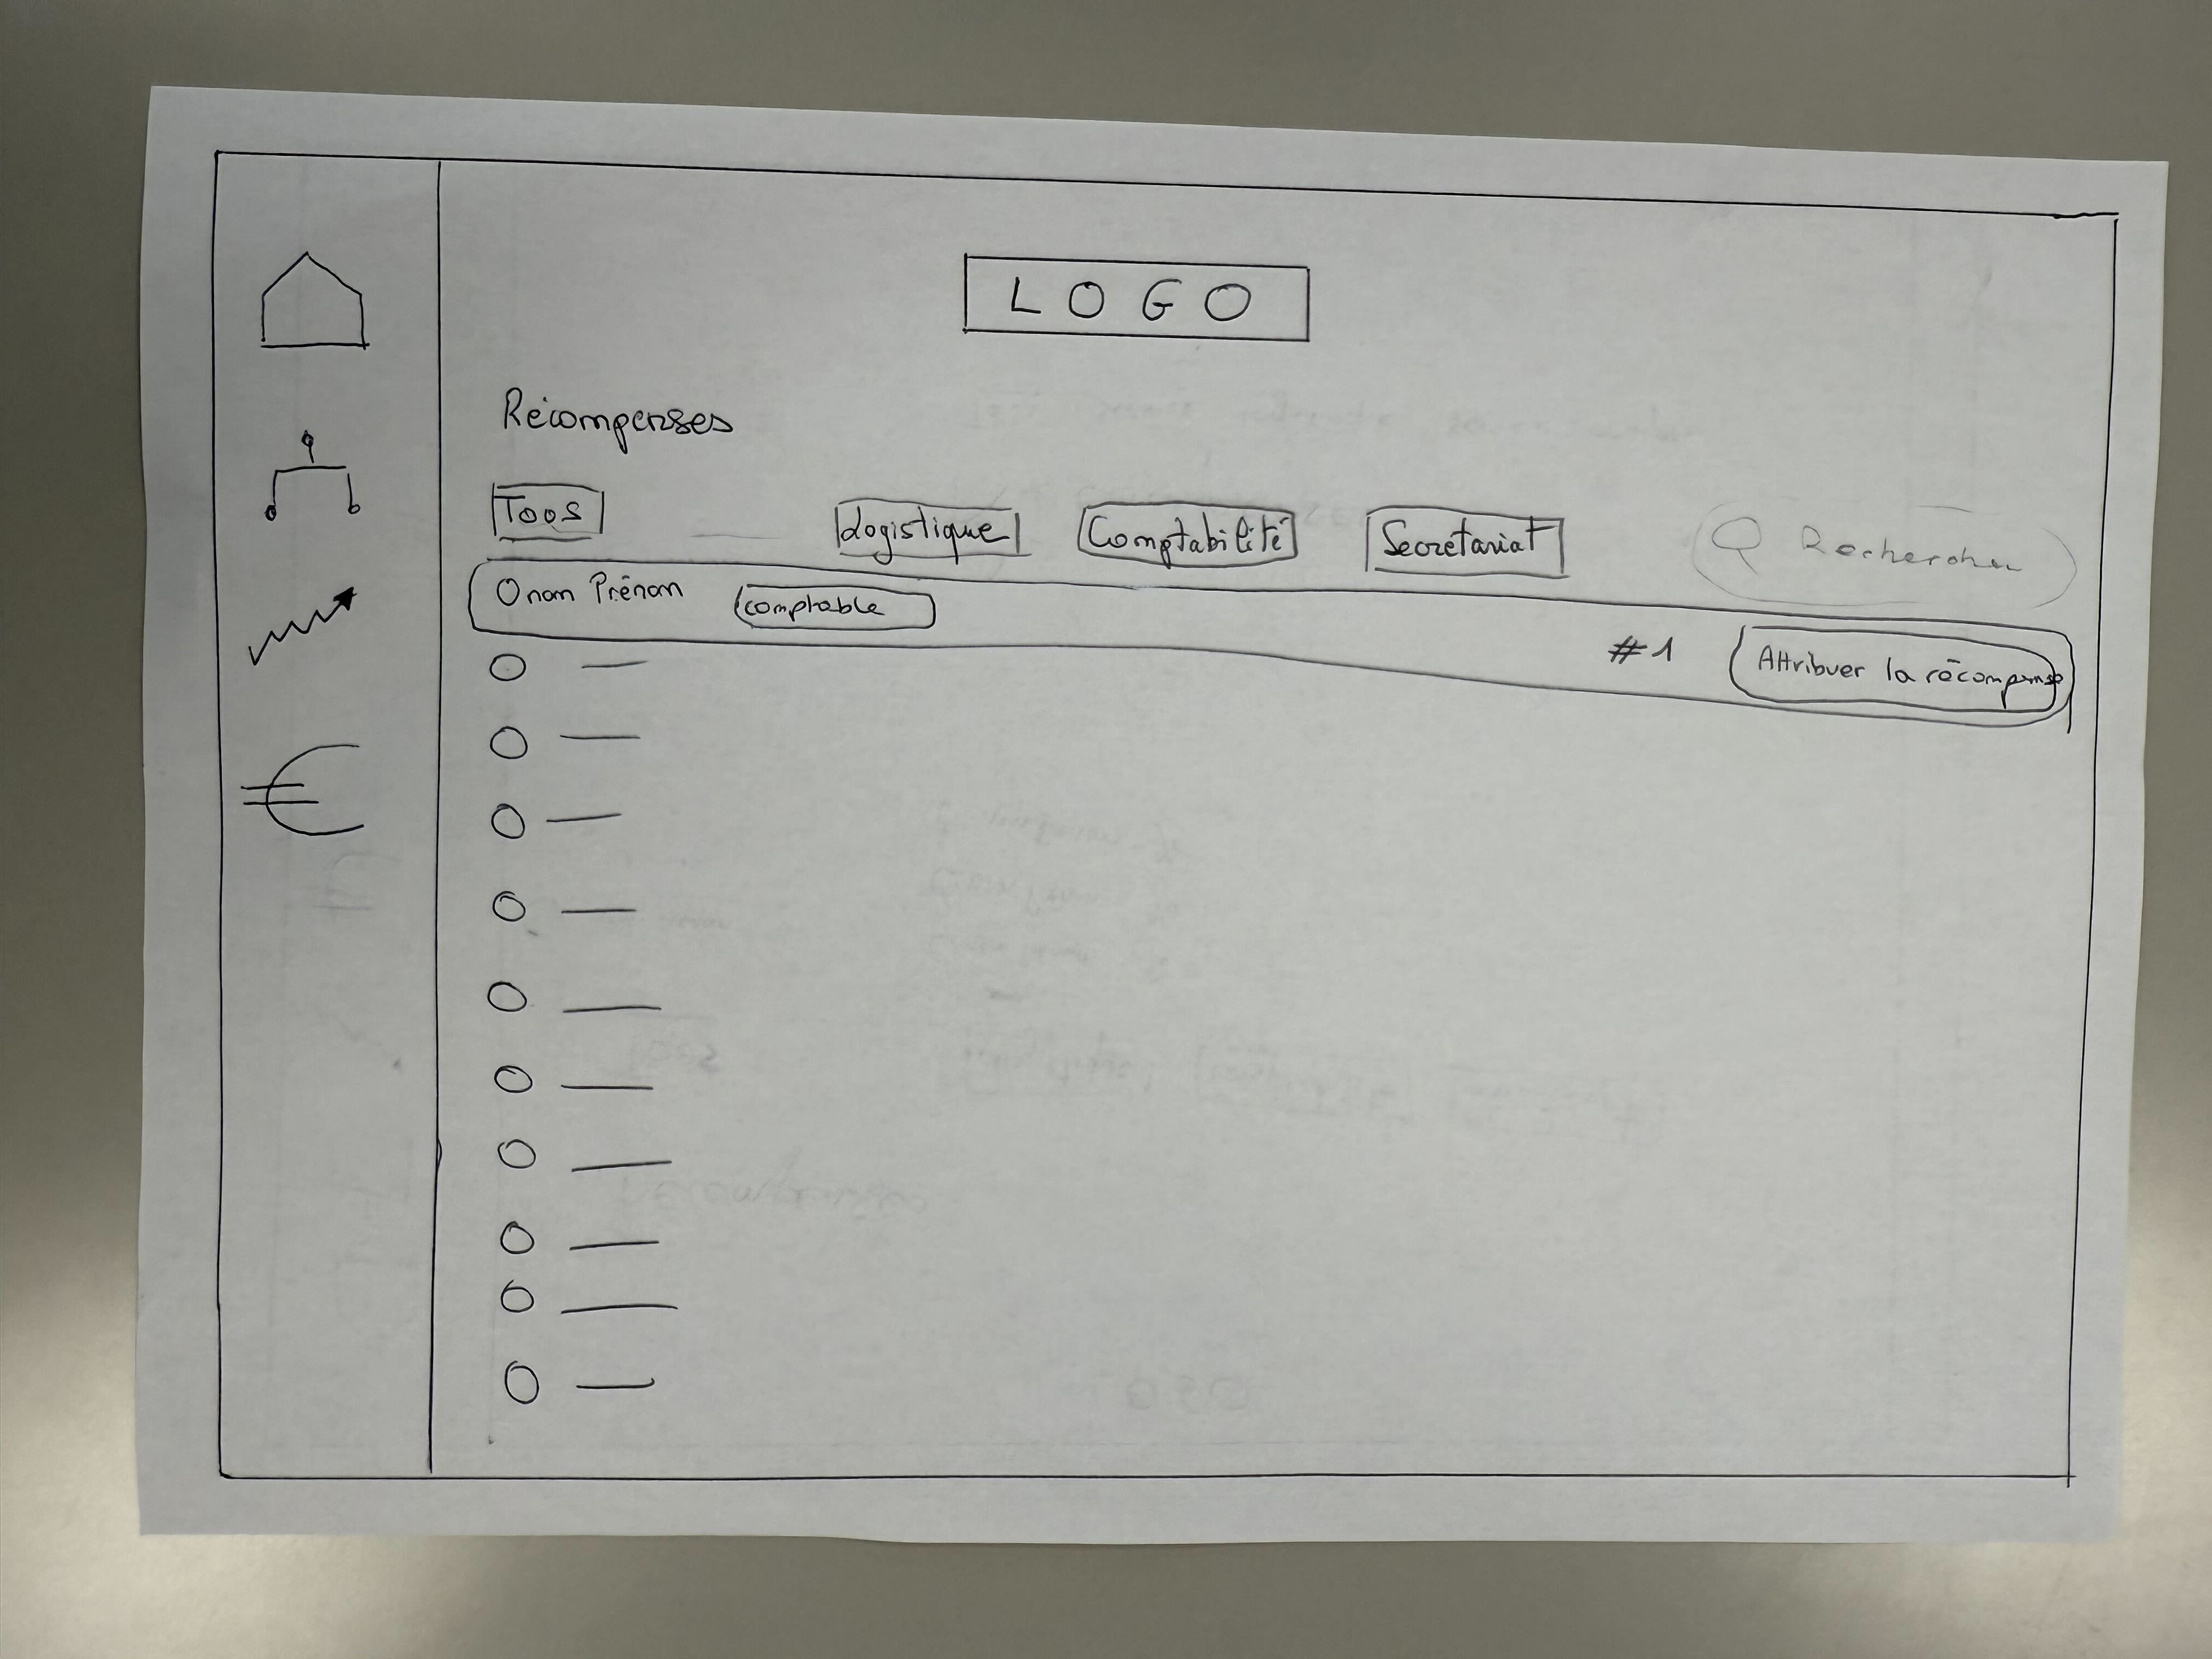 LOGO
Récompenses
Tous Logistique Comptabilité Secrétariat Rechercher
nom Prénom comptable
#1 Attribuer la récompense
€